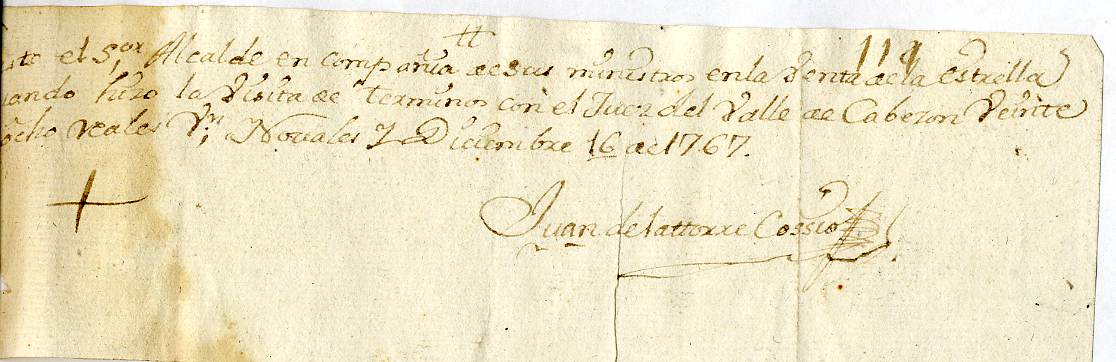 tt
114
el S.or Alcalde en compañia de sus ministros en la Venta de la estrella
hizo la Visita de terminos con el Juez del Valle de Cabezon Veinte
ocho reales V.n Novales y Diciembre 16 de 1767.
Juan de la ttorre Cossio